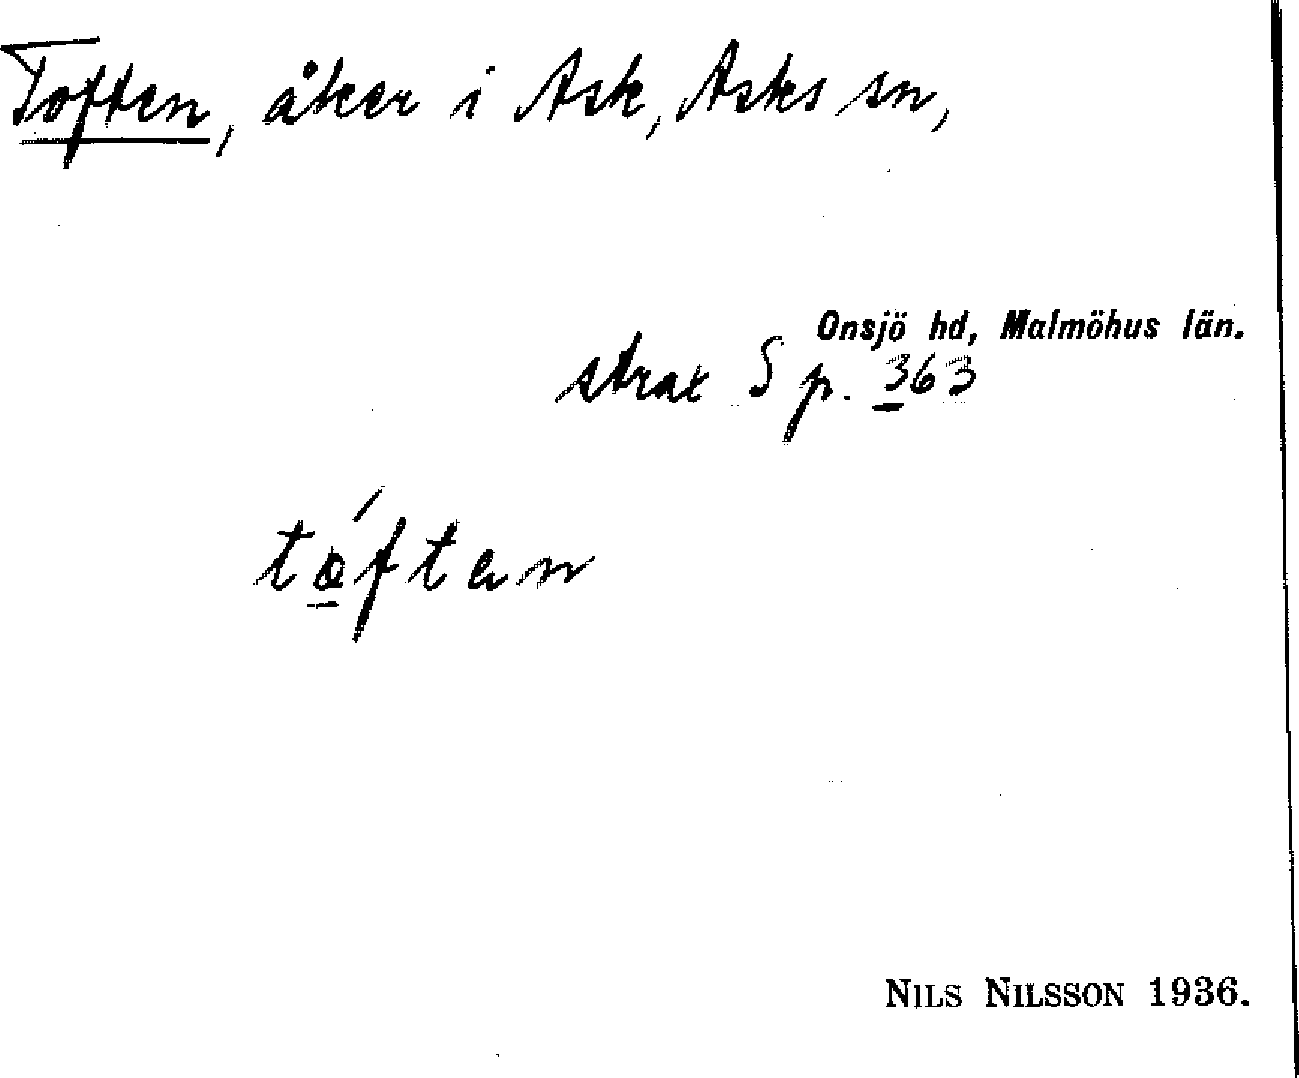 Toften, åker i Ask, Asks sn,
Onsjö hd, Malmöhus län.
strax S p. 363
tóften
NILS NILSSON 1936.